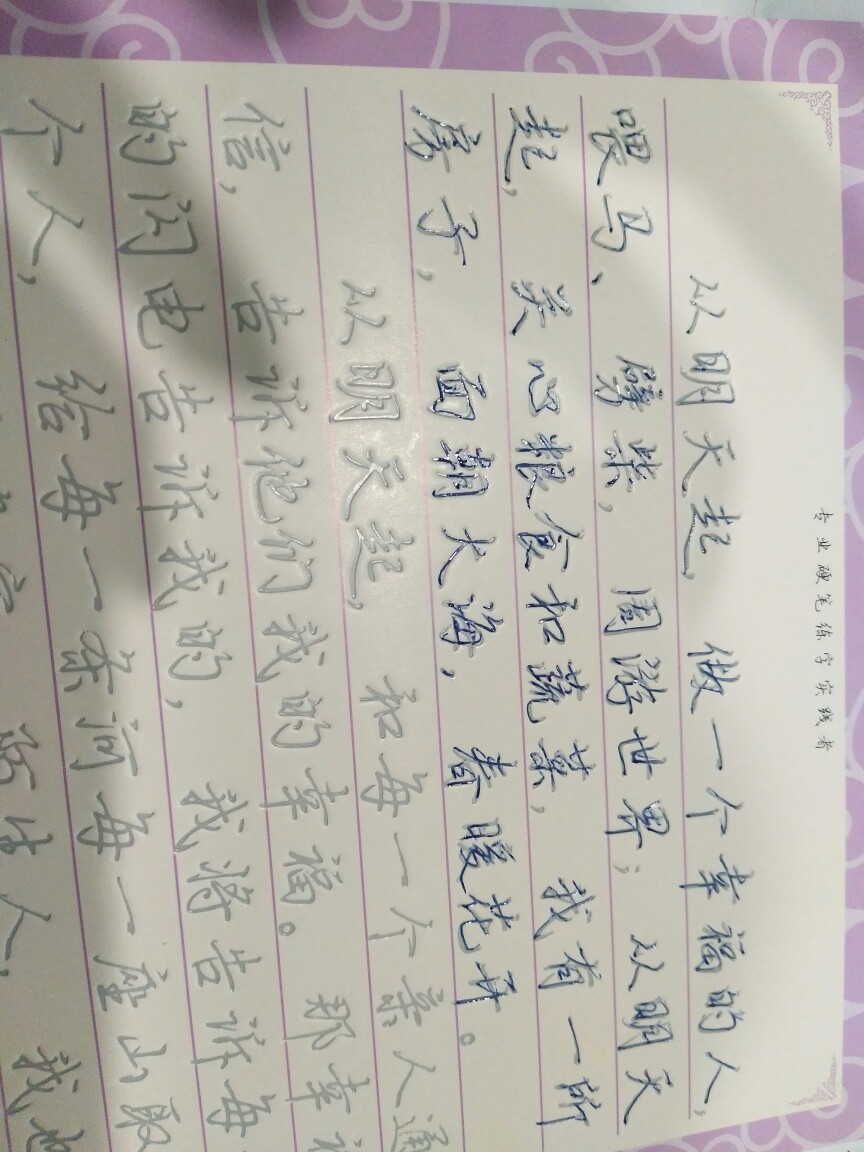 专业硬笔练字实践者
从明天起,做一个幸福的人,
喂马、劈柴,周游世界;从明天
起,关心粮食和蔬菜,我有一所
房子,面朝大海,春暖花开。
从明天起,和每一个亲人通
信,告诉他们我的幸福。那幸福
的闪电告诉我的,我将告诉每
个人,给每一条河每一座山取
陌生人,我也